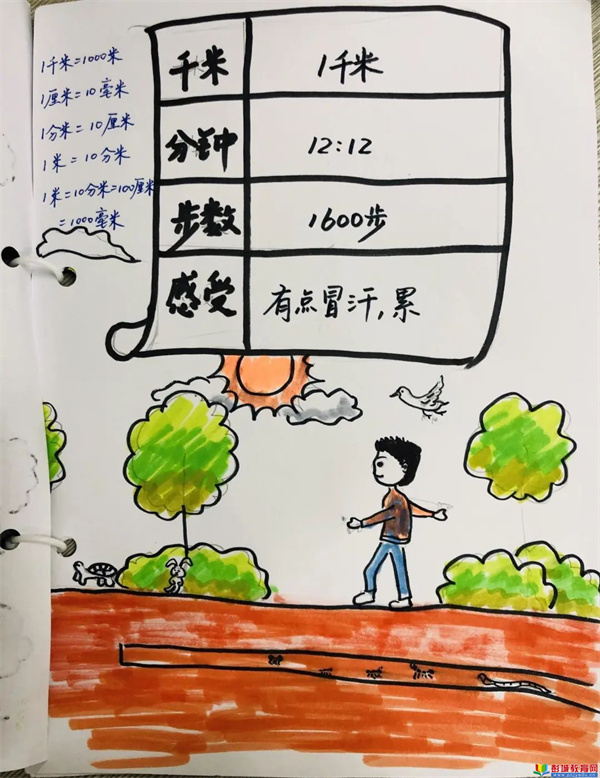 1千米=1000米
1厘米=10毫米
1分米=10厘米
1米=10分米
1米=10分米=100厘米
=1000毫米
千米 1千米
分钟 12:12
步数 1600步
感受 有点冒汗,累
彭城教育网